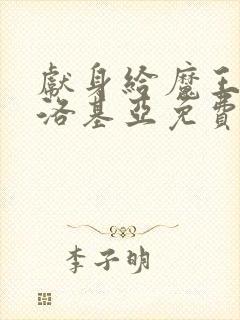 獻身給魔王
洛基亞免費
李子明